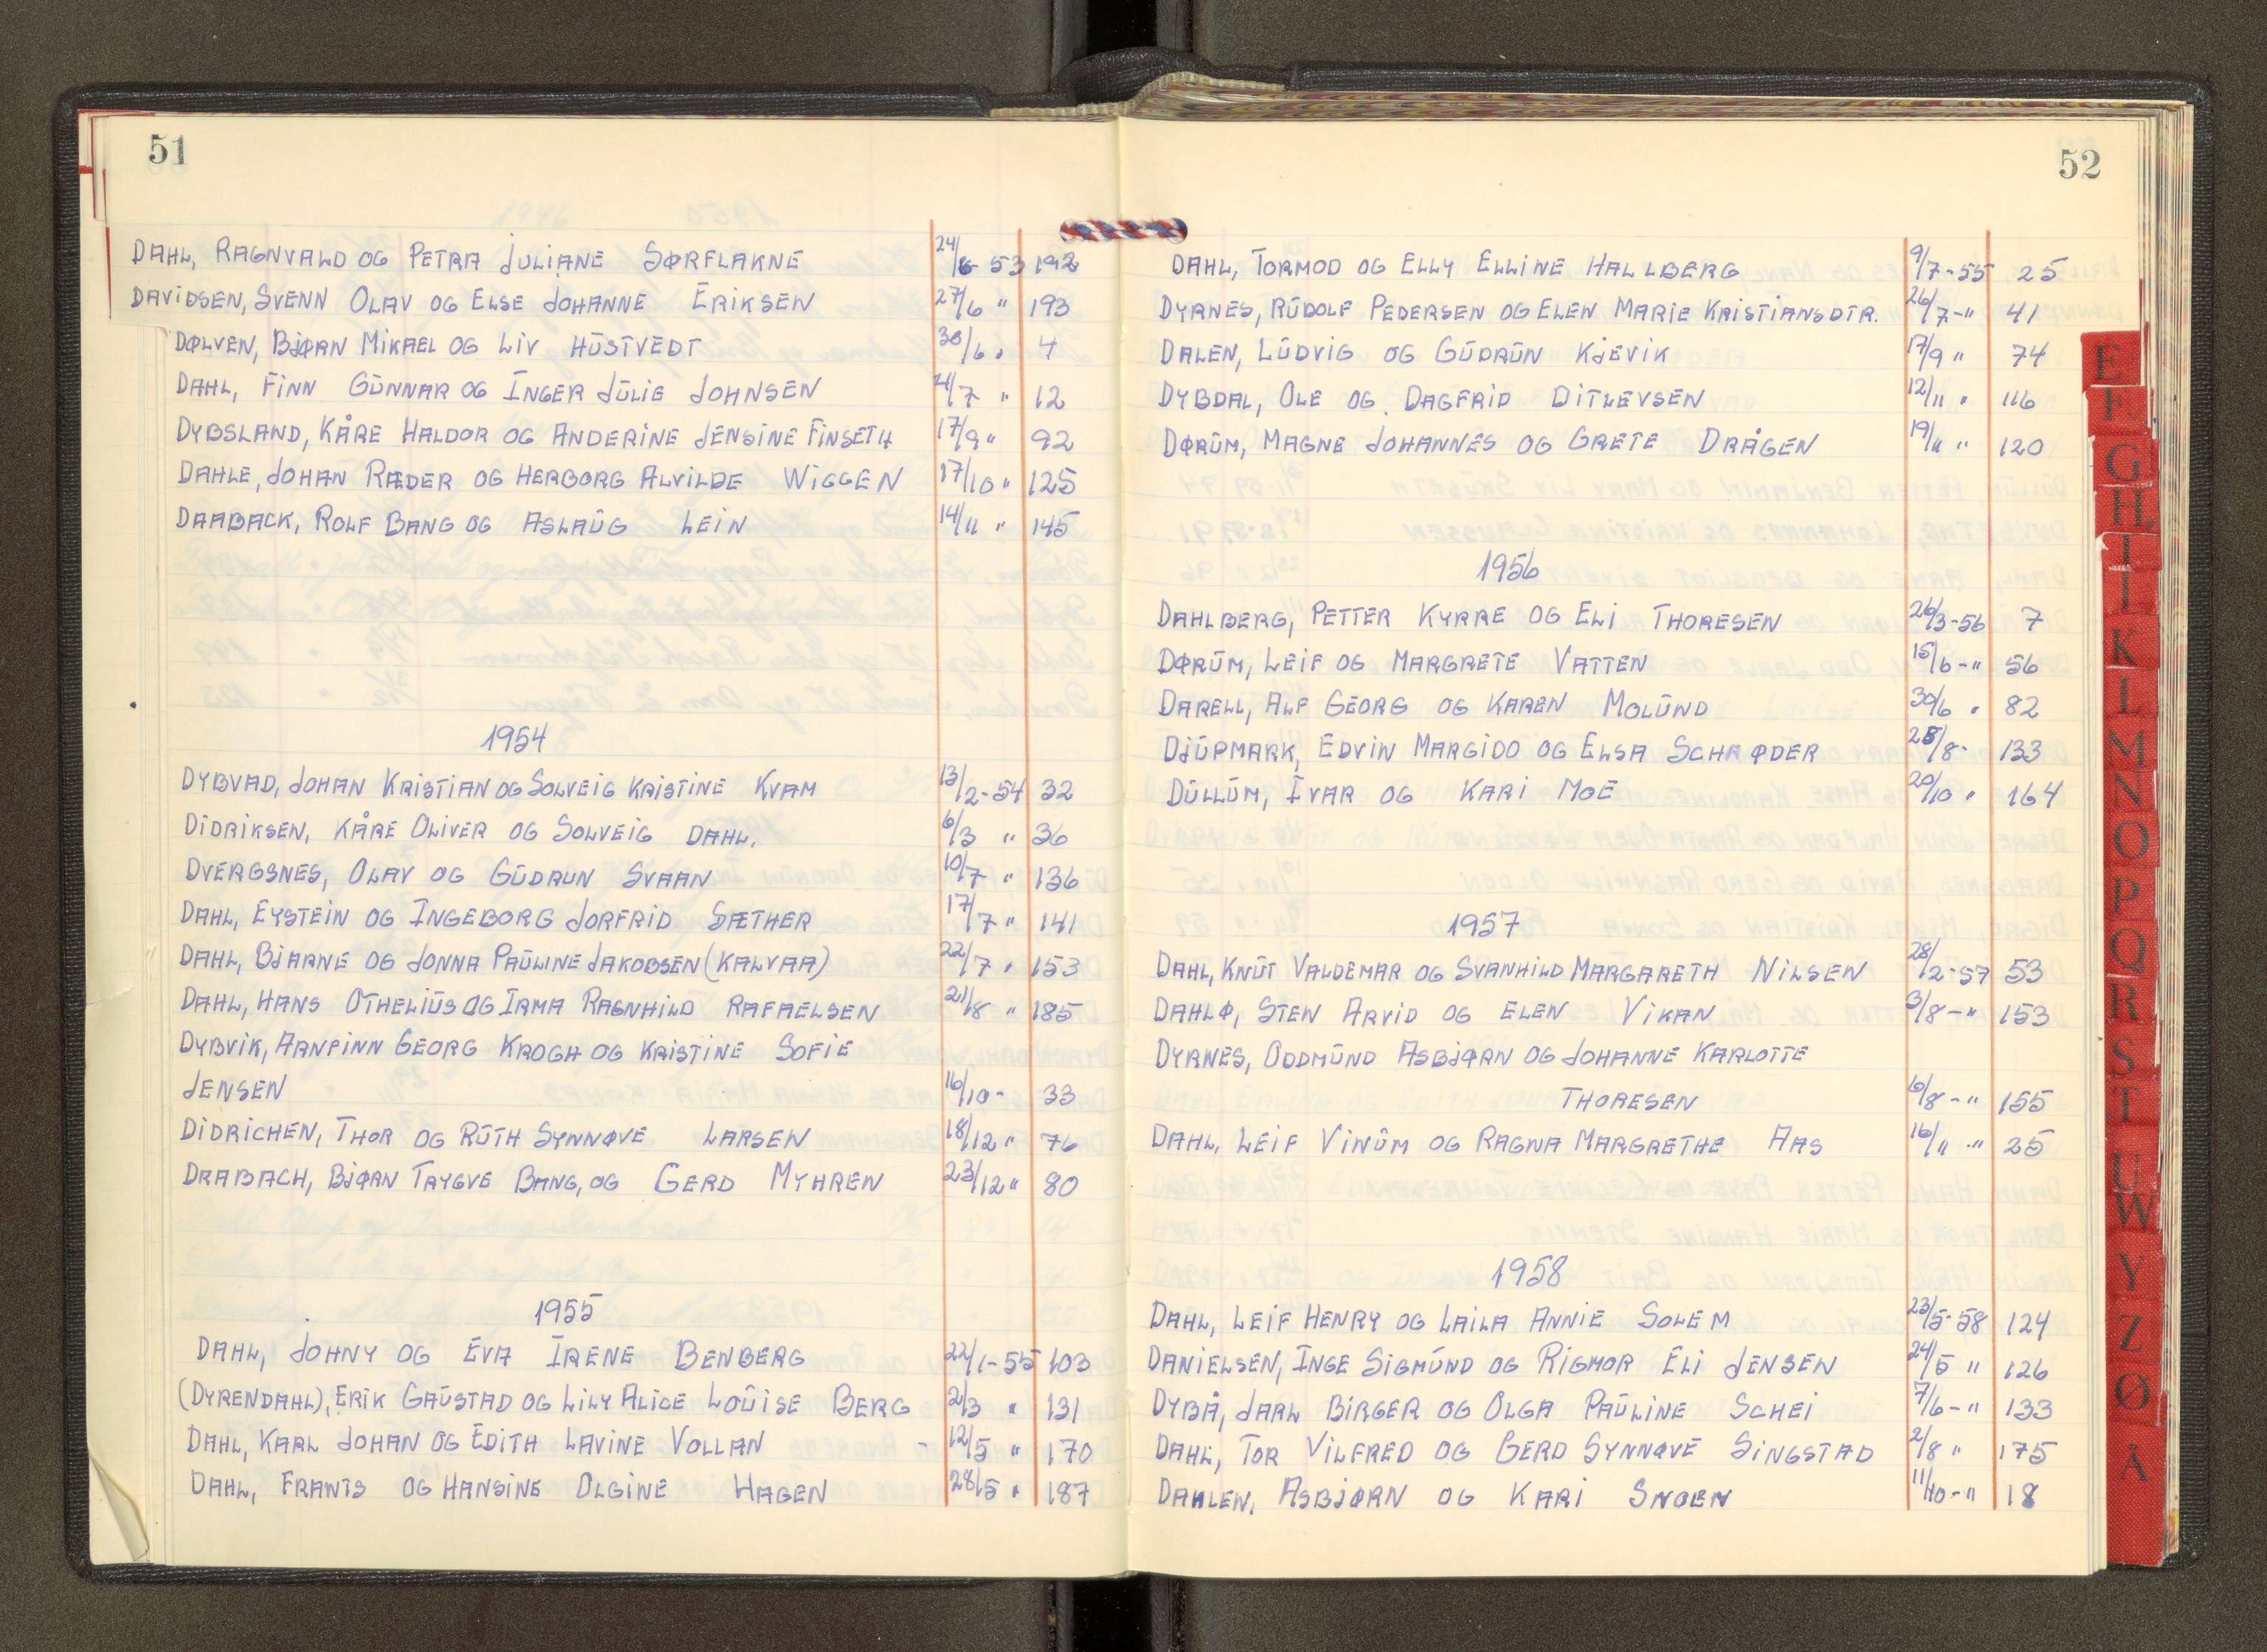 51
DAHL, RAGNVALD OG PETRA JULIANE SØRFLAKNE 24/6-53 192
DAVIDSEN, SVENN OLAV OG ELSE JOHANNE ERIKSEN 27/6 " 193
DØLVEN, BJØRN MIKAEL OG LIV HUSTVEDT 30/6 " 4
DAHL, FINN GUNNAR OG INGER JULIE JOHNSEN /7 " 12
DYBSLAND, KÅRE HALDOR OG ANDERINE JENSINE FINSETH 17/9 " 92
DAHLE, JOHAN RÆDER OG HERBORG ALVILDE WIGGEN 17/10 " 125
DRABACK, ROLF BANG OG ASLAUG LEIN 14/11 " 145
1954
DYBVAD, JOHAN KRISTIAN OG SOLVEIG KRISTINE KVAM 13/2-54 32
DIDRIKSEN, KÅRE OLIVER OG SOLVEIG DAHL. 6/3 " 36
DVERGSNES, OLAV OG GUDRUN SVAAN 10/7 " 136
DAHL, EYSTEIN OG INGEBORG JORFRID SÆTHER 17/7 " 141
DAHL, BJARNE OG JONNA PAULINE JAKOBSEN (KALVAA) 22/7 " 153
DAHL, HANS OTHELIUS OG IRMA RAGNHILD RAFAELSEN 21/8 " 185
DYBVIK, ARNFINN GEORG KROGH OG KRISTINE SOFIE
JENSEN 16/10- 33
DIDRICHEN, THOR OG RUTH SYNNØVE LARSEN 18/12 " 76
DRABACH, BJØRN TRYGVE BANG, OG GERD MYHREN 23/12 " 80
1955
DAHL, JOHNY OG EVA IRENE BENBERG 22/1-55 103
(DYRENDAHL), ERIK GAUSTAD OG LILY ALICE LOUISE BERG 2/3 " 131
DAHL, KARL JOHAN OG EDITH LAVINE VOLLAN - 12/5 " 170
DAHL, FRANTS OG HANSINE OLGINE HAGEN 28/5 " 187
52
DAHL, TORMOD OG ELLY ELLINE HALLBERG 9/7-55 25
DYRNES, RUDOLF PEDERSEN OG ELEN MARIE KRISTIANSDTR. 26/7-" 41
DALEN, LUDVIG OG GUDRUN KJEVIK 17/9 " 74
DYBDAL, OLE OG DAGFRID DITLEVSEN 12/11 " 116
DØRUM, MAGNE JOHANNES OG GRETE DRÅGEN 19/11 " 120
1956
DAHLBERG, PETTER KYRRE OG ELI THORESEN 26/3-56 7
DØRUM, LEIF OG MARGRETE VATTEN 15/6-" 56
DARELL, ALF GEORG OG KAREN MOLUND 30/6 " 82
DJUPMARK, EDVIN MARGIDO OG ELSA SCHRØDER 25/8- 133
DULLUM, IVAR OG KARI MOE 20/10 " 164
1957
DAHL, KNUT VALDEMAR OG SVANHILD MARGARETH NILSEN 28/2-57 53
DAHLØ, STEN ARVID OG ELEN VIKAN 3/8-" 153
DYRNES, ODDMUND ASBJØRN OG JOHANNE KARLOTTE
THORESEN 6/8-" 155
DAHL, LEIF VINUM OG RAGNA MARGRETHE AAS 16/11-" 25
1958
DAHL, LEIF HENRY OG LAILA ANNIE SOLEM 23/5-58 124
DANIELSEN, INGE SIGMUND OG RIGMOR ELI JENSEN 24/5 " 126
DYBÅ, JARL BIRGER OG OLGA PAULINE SCHEI 7/6-" 133
DAHL, TOR VILFRED OG GERD SYNNØVE SINGSTAD 2/8 " 175
DAHLEN, ASBJØRN OG KARI SNOEN 11/10-" 18
E
F
G
H
I
J
K
L
M
N
O
P
Q
R
S
T
U
W
Y
Z
Ø